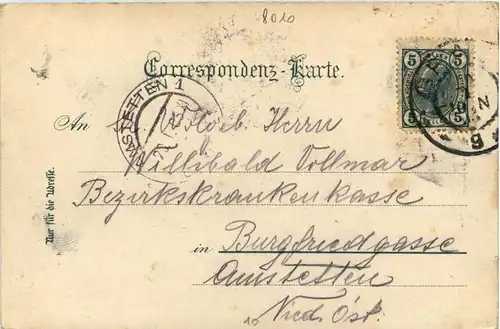 8010
Correspondenz-Karte.
5 5
5 5
AMSTETTEN 1
An Wolgeb. Herrn
Willibald Vollmar
Bezirkskrankenkasse
in Burgfriedgasse
Amstetten
Nied. Öst.
Nur für die Adresse.